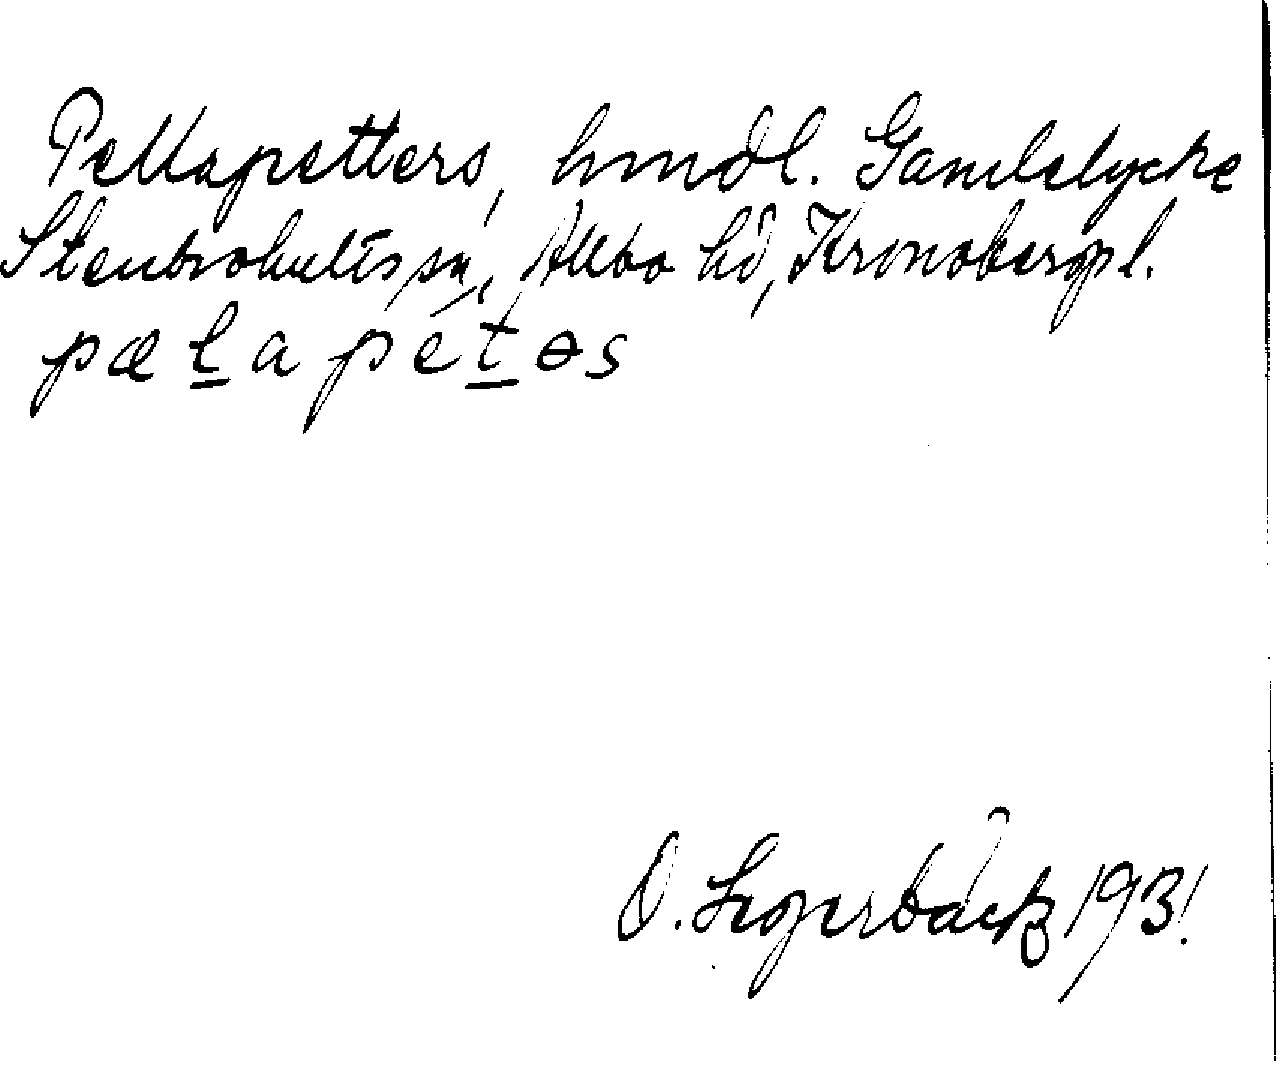 Pellapetters, hmdl. Gamlelycke
Stenbrohults sn, Allbo hd, Kronobergs l.
pæḻapéṯəs
O. Segerbäck 1931